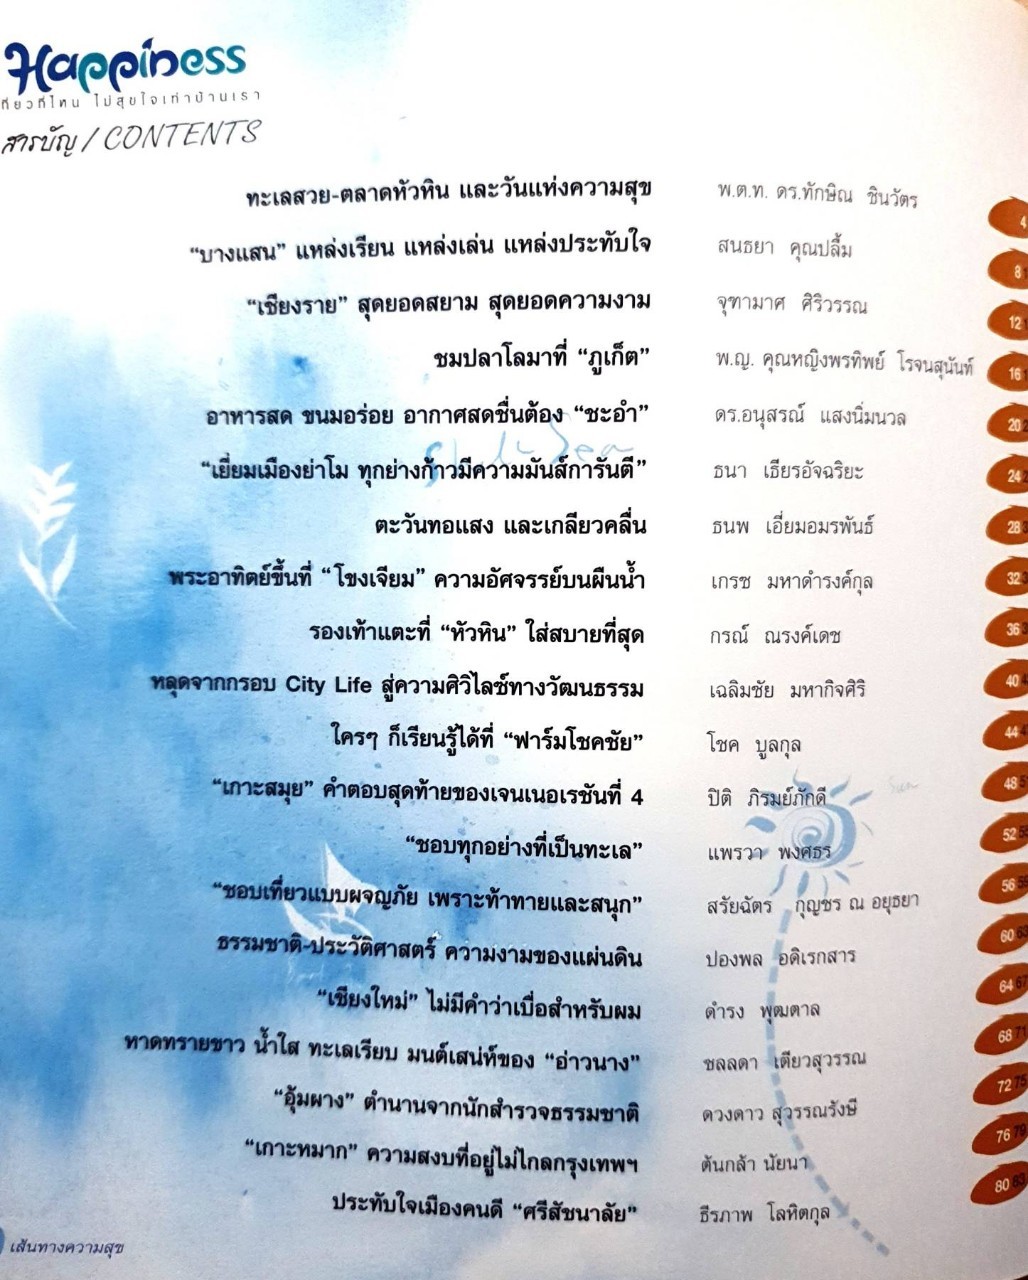 Happiness
ที่ยวที่ไหน ไม่สุขใจเท่าบ้านเรา
สารบัญ / CONTENTS
ทะเลสวย-ตลาดหัวหิน และวันแห่งความสุข พ.ต.ท. ดร.ทักษิณ ชินวัตร 4
“บางแสน” แหล่งเรียน แหล่งเล่น แหล่งประทับใจ สนธยา คุณปลื้ม 8
“เชียงราย” สุดยอดสยาม สุดยอดความงาม จุฑามาศ ศิริวรรณ 12
ชมปลาโลมาที่ “ภูเก็ต” พ.ญ. คุณหญิงพรทิพย์ โรจนสุนันท์ 16
อาหารสด ขนมอร่อย อากาศสดชื่นต้อง “ชะอำ” ดร.อนุสรณ์ แสงนิ่มนวล 20
“เยี่ยมเมืองย่าโม ทุกย่างก้าวมีความมันส์การันตี” ธนา เธียรอัจฉริยะ 24
ตะวันทอแสง และเกลียวคลื่น ธนพ เอี่ยมอมรพันธ์ 28
พระอาทิตย์ขึ้นที่ “โขงเจียม” ความอัศจรรย์บนผืนน้ำ เกรซ มหาดำรงค์กุล 32
รองเท้าแตะที่ “หัวหิน” ใส่สบายที่สุด กรณ์ ณรงค์เดช 36
หลุดจากกรอบ City Life สู่ความศิวิไลซ์ทางวัฒนธรรม เฉลิมชัย มหากิจศิริ 40
ใครๆ ก็เรียนรู้ได้ที่ “ฟาร์มโชคชัย” โชค บูลกุล 44
“เกาะสมุย” คำตอบสุดท้ายของเจนเนอเรชันที่ 4 ปิติ ภิรมย์ภักดี 48
“ชอบทุกอย่างที่เป็นทะเล” แพรวา พงศธร 52
“ชอบเที่ยวแบบผจญภัย เพราะท้าทายและสนุก” สรัยฉัตร กุญชร ณ อยุธยา 56
ธรรมชาติ-ประวัติศาสตร์ ความงามของแผ่นดิน ปองพล อดิเรกสาร 60
“เชียงใหม่” ไม่มีคำว่าเบื่อสำหรับผม ดำรง พุฒตาล 64
หาดทรายขาว น้ำใส ทะเลเรียบ มนต์เสน่ห์ของ “อ่าวนาง” ชลลดา เตียวสุวรรณ 68
“อุ้มผาง” ตำนานจากนักสำรวจธรรมชาติ ดวงดาว สุวรรณรังษี 72
“เกาะหมาก” ความสงบที่อยู่ไม่ไกลกรุงเทพฯ ต้นกล้า นัยนา 76
ประทับใจเมืองคนดี “ศรีสัชนาลัย” ธีรภาพ โลหิตกุล 80
เส้นทางความสุข